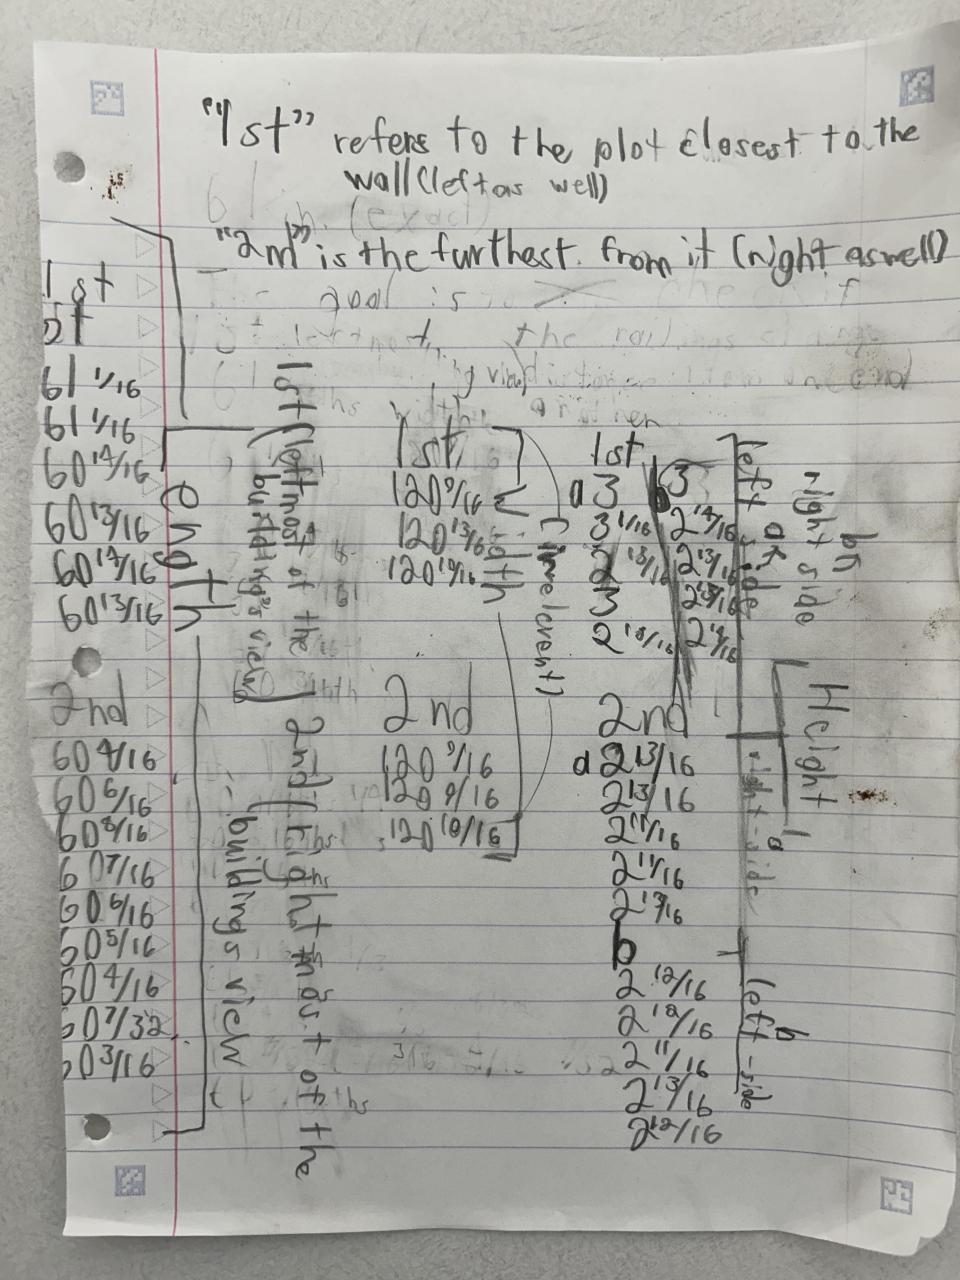 "1st" refers to the plot closest to the
wall (left as well)
"2nd" is the furthest from it (right as well)
1st
61 1/16
61 1/16
60 14/16
60 13/16
60 14/16
60 13/16
2nd
60 4/16
60 6/16
60 8/16
60 7/16
60 6/16
60 5/16
60 4/16
60 7/32
60 3/16
Length
1st (left most of the
building's view)
2nd (right most of the
buildings view
1st
120 9/16
120 13/16
120 10/16
2nd
120 9/16
120 9/16
120 10/16
width
(irrelevent)
1st
a 3
3 1/16
2 13/16
3
2 13/16
b 3
2 14/16
2 13/16
2 13/16
2nd
a 2 13/16
2 13/16
2 11/16
2 11/16
2 13/16
b
2 12/16
2 12/16
2 11/16
2 13/16
2 12/16
left side
right side
Height
a
right-side
b
left-side